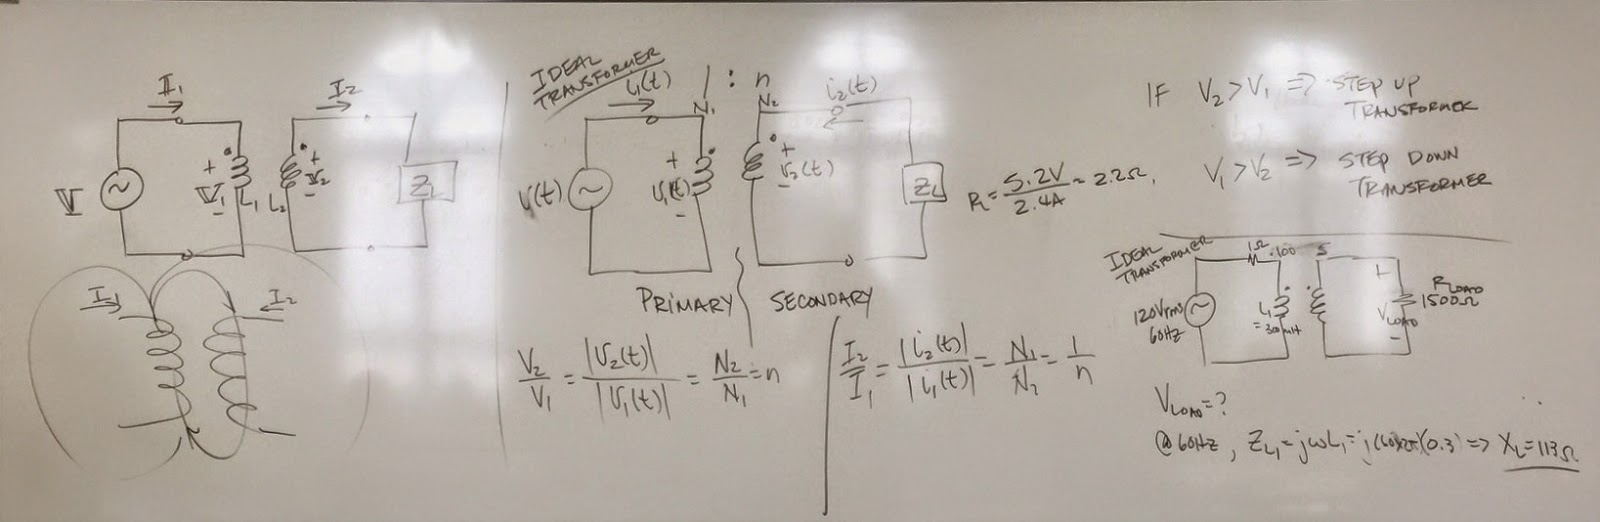 I₁
I₂
V
+
V₁
-
L₁
L₂
+
V₂
-
Z_L
I₁
I₂
IDEAL
TRANSFORMER
1 : n
i₁(t)
N₁
N₂
i₂(t)
v(t)
+
v₁(t)
-
+
v₂(t)
-
Z_L
R = 5.2V / 2.4A = 2.2Ω.
PRIMARY
SECONDARY
V₂/V₁ = |v₂(t)|/|v₁(t)| = N₂/N₁ = n
I₂/I₁ = |i₂(t)|/|i₁(t)| = N₁/N₂ = 1/n
IF V₂ > V₁ => STEP UP
TRANSFORMER
V₁ > V₂ => STEP DOWN
TRANSFORMER
IDEAL
TRANSFORMER
1Ω
100
5
120Vrms
60Hz
L₁
= 300mH
+
V_LOAD
-
R_LOAD
1500Ω
V_LOAD = ?
@ 60Hz, Z_L₁ = jωL₁ = j(60)(2π)(0.3) => X_L = 113Ω